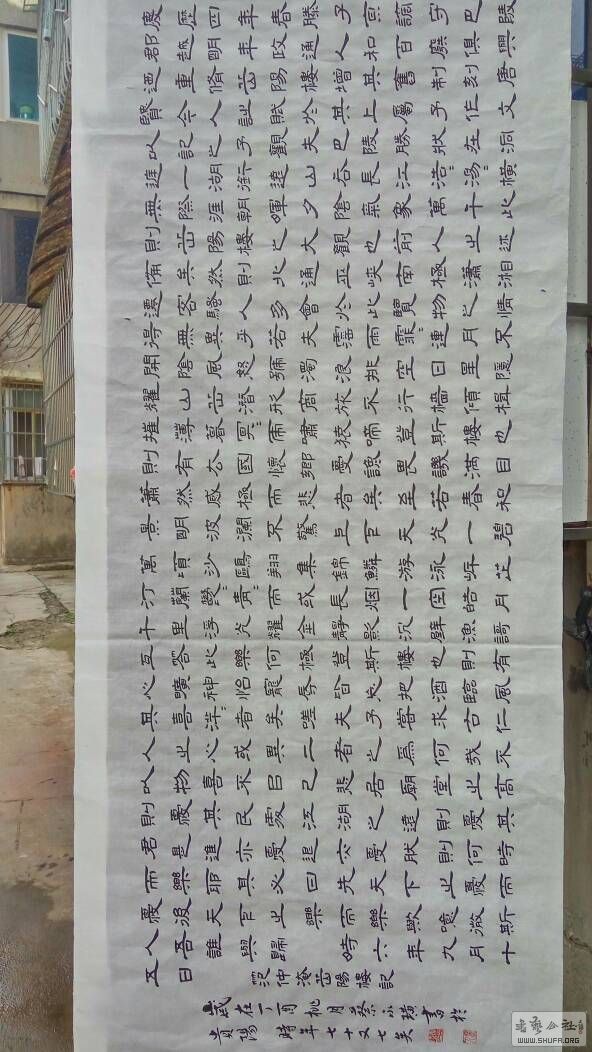 慶曆四年春滕子京謫守巴陵
郡越明年政通人和百廢俱興
迺重脩岳陽樓增其舊制刻唐
賢今人詩賦於其上屬予作文
以記之予觀夫巴陵勝狀在洞
庭一湖銜遠山吞長江浩〻湯〻橫
無際涯朝暉夕隂氣象萬千此
則岳陽樓之大觀也前人之述
備矣然則北通巫峽南極瀟湘
遷客騷人多會於此覽物之情
得無異乎若夫霪雨霏〻連月不
開隂風怒號濁浪排空日星隱
耀山岳潛形商旅不行檣傾楫
摧薄暮冥〻虎嘯猿啼登斯樓也
則有去國懷鄉憂讒畏譏滿目
蕭然感極而悲者矣至若春和
景明波瀾不驚上下天光一碧
萬頃沙鷗翔集錦鱗游泳岸芷
汀蘭郁〻青〻而或長烟一空皓月
千里浮光耀金靜影沉璧漁謌
互答此樂何極登斯樓也則有
心曠神怡寵辱皆忘把酒臨風
其喜洋〻者矣嗟夫予嘗求古仁
人之心或異二者之為何哉不
以物喜不以己悲居廟堂之高
則憂其民處江湖之遠則憂其
君是進亦憂退亦憂然則何時
而樂耶其必曰先天下之憂而
憂後天下之樂而樂歟噫微斯
人吾誰與歸時六年九月十
五日
范仲淹岳陽樓記
歲在丁酉桃月蔡 書於
貴陽時年七十又七矣
WWW.SHUFA.ORG